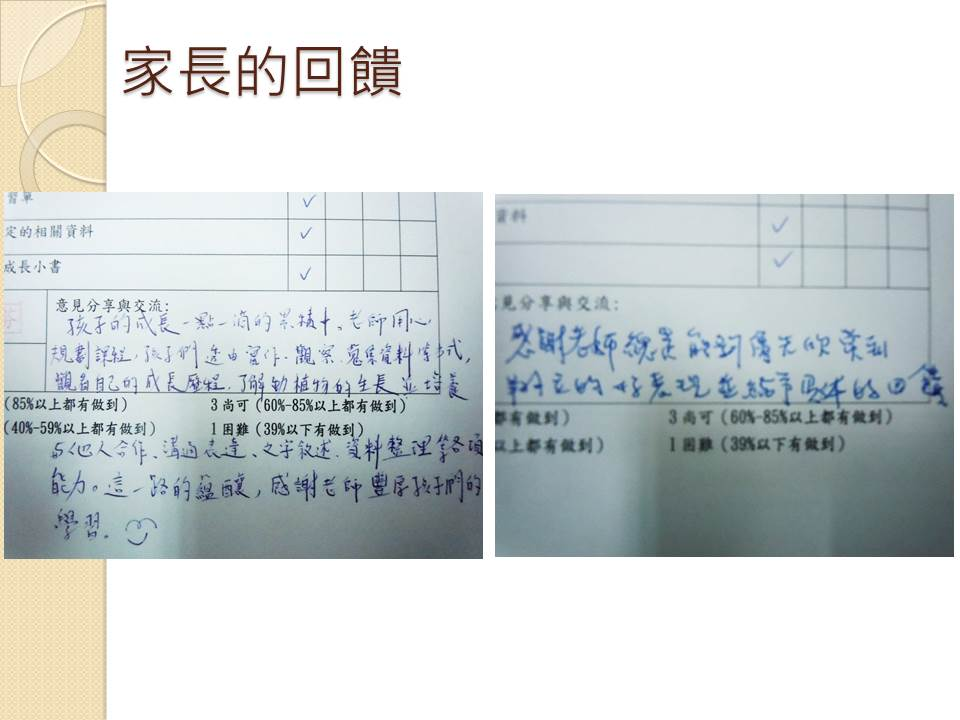 家長的回饋
習單
定的相關資料
成長小書
意見分享與交流:
孩子的成長一點一滴的累積中。老師用心
規劃課程,孩子們透由實作、觀察、蒐集資料等方式,
觀看自己的成長歷程,了解動植物的生長並培養
(85%以上都有做到) 3 尚可(60%-85%以上都有做到)
(40%-59%以上都有做到) 1 困難(39%以下有做到)
與他人合作、溝通表達、文字敘述、資料整理等各項
能力。這一路的醞釀,感謝老師豐厚孩子們的
學習。
資料
見分享與交流:
感謝老師總是能
的好表現並給予具體的回饋
都有做到) 3 尚可(60%-85%以上都有做到)
以上都有做到) 1 困難(39%以下有做到)